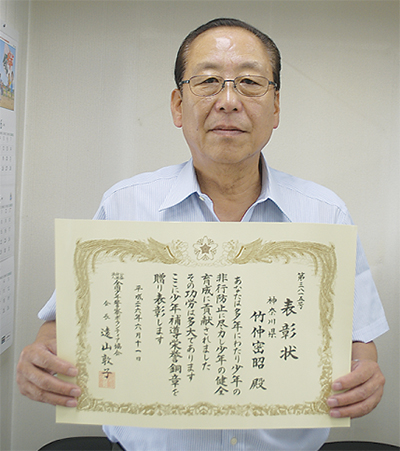 第三八二五号
表彰状
神奈川県
竹仲密昭殿
あなたは多年にわたり少年の
非行防止に尽力し少年の健全
育成に貢献されました
その功労は多大であります
ここに少年補導栄誉銅章を
贈り表彰します
平成二六年六月十一日
全国少年警察ボランティア協会
会長 遠山敦子